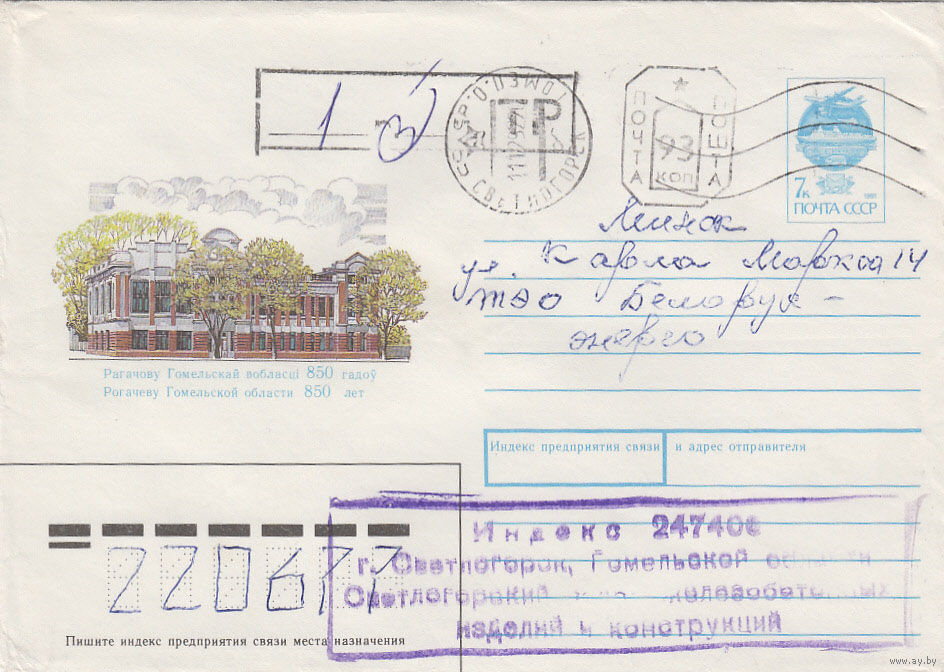 1 3
ГОМЕЛ.О.
СВЕТЛОГОРСК
ТР
ПОЧТА 93 КОП ПОШТА
7к 1991
ПОЧТА СССР
Минск
ул. Карла Маркса 14
тэо Беларус-
энерго
Рагачову Гомельскай вобласці 850 гадоў
Рогачеву Гомельской области 850 лет
Индекс предприятия связи и адрес отправителя
Индекс 247406
г. Светлогорск, Гомельской области
Светлогорский железобетонных
изделий и конструкций
220677
Пишите индекс предприятия связи места назначения
www.ay.by